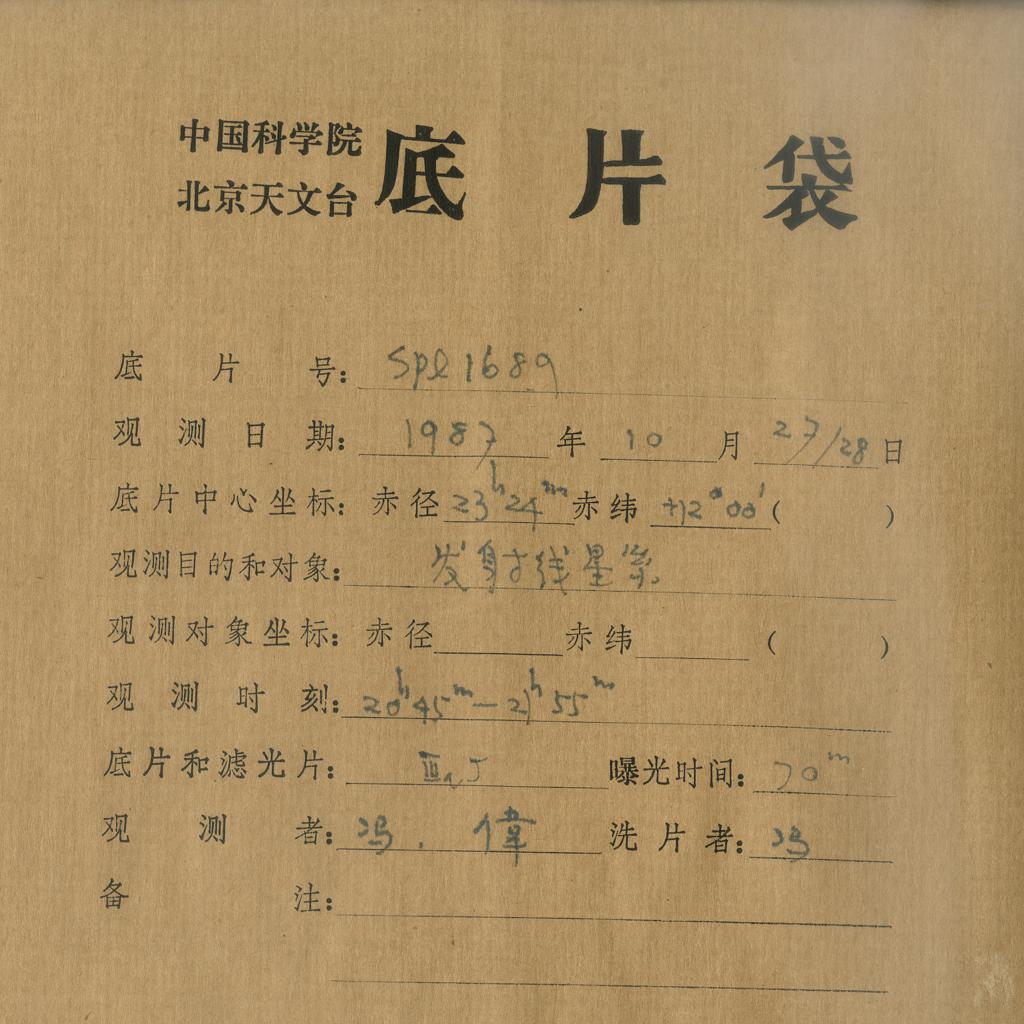 中国科学院
北京天文台 底片袋
底片号: Spl 1689
观测日期: 1987年 10月 27/28日
底片中心坐标: 赤径 23h 24m 赤纬 +12°00′( )
观测目的和对象: 发射线星系
观测对象坐标: 赤径 赤纬 ( )
观测时刻: 20h 45m — 21h 55m
底片和滤光片: Ⅲa J 曝光时间: 70m
观测者: 冯. 偉 洗片者: 冯
备注: